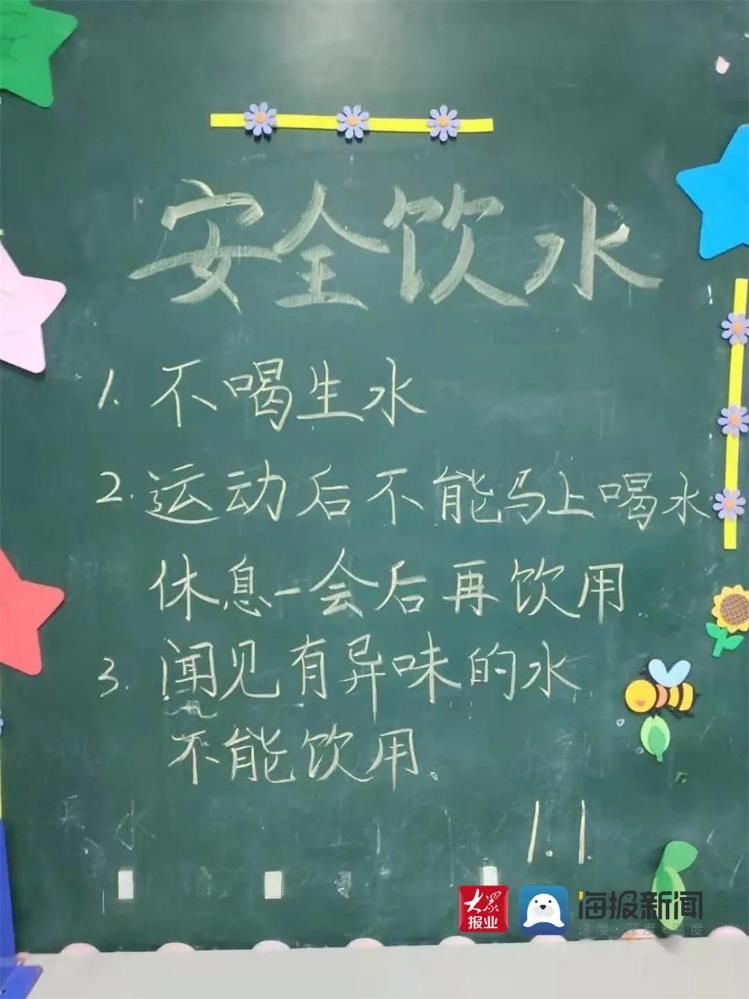 安全饮水
1. 不喝生水
2. 运动后不能马上喝水
休息一会后再饮用
3. 闻见有异味的水
不能饮用.
1.1.
大众报业 海报新闻
速度·深度·温度